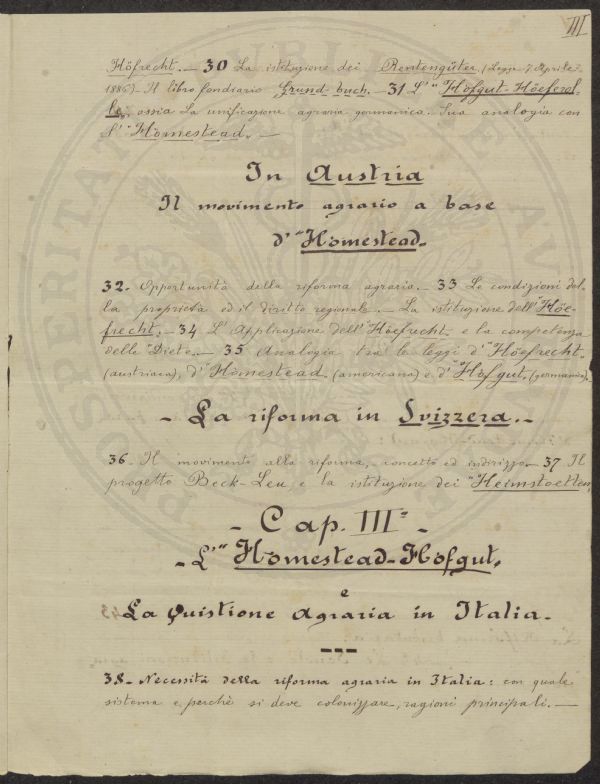 III
Höfrecht. — 30 La istituzione dei Rentengüter. (Legge 7 Aprile
1886) - Il libro fondiario Grund-buch. — 31 L'"Höfgut-Höeferol-
le, ossia La unificazione agraria germanica. Sua analogia con
l'"Homestead. —
In Austria
Il movimento agrario a base
d'"Homestead.
32. Opportunità della riforma agraria. — 33 Le condizioni del
la proprietà ed il diritto regionale. — La istituzione dell'"Höe-
frecht. — 34 L'Applicazione dell'Höefrecht e la competenza
delle "Diete. — 35 Analogia tra le leggi d'"Höefrecht.
(austriaca), d'"Homestead. (americana) e d'"Hofgut. (germanica).
- La riforma in Svizzera. -
36. Il movimento alla riforma, - concetto ed indirizzo. — 37 Il
progetto Beck-Leu, e la istituzione dei "Heimstoetten,
- Cap. III° -
- L'"Homestead-Hofgut,
e
La Quistione Agraria in Italia. -
38 - Necessità della riforma agraria in Italia: con quale
sistema e perchè si deve colonizzare, ragioni principali. —